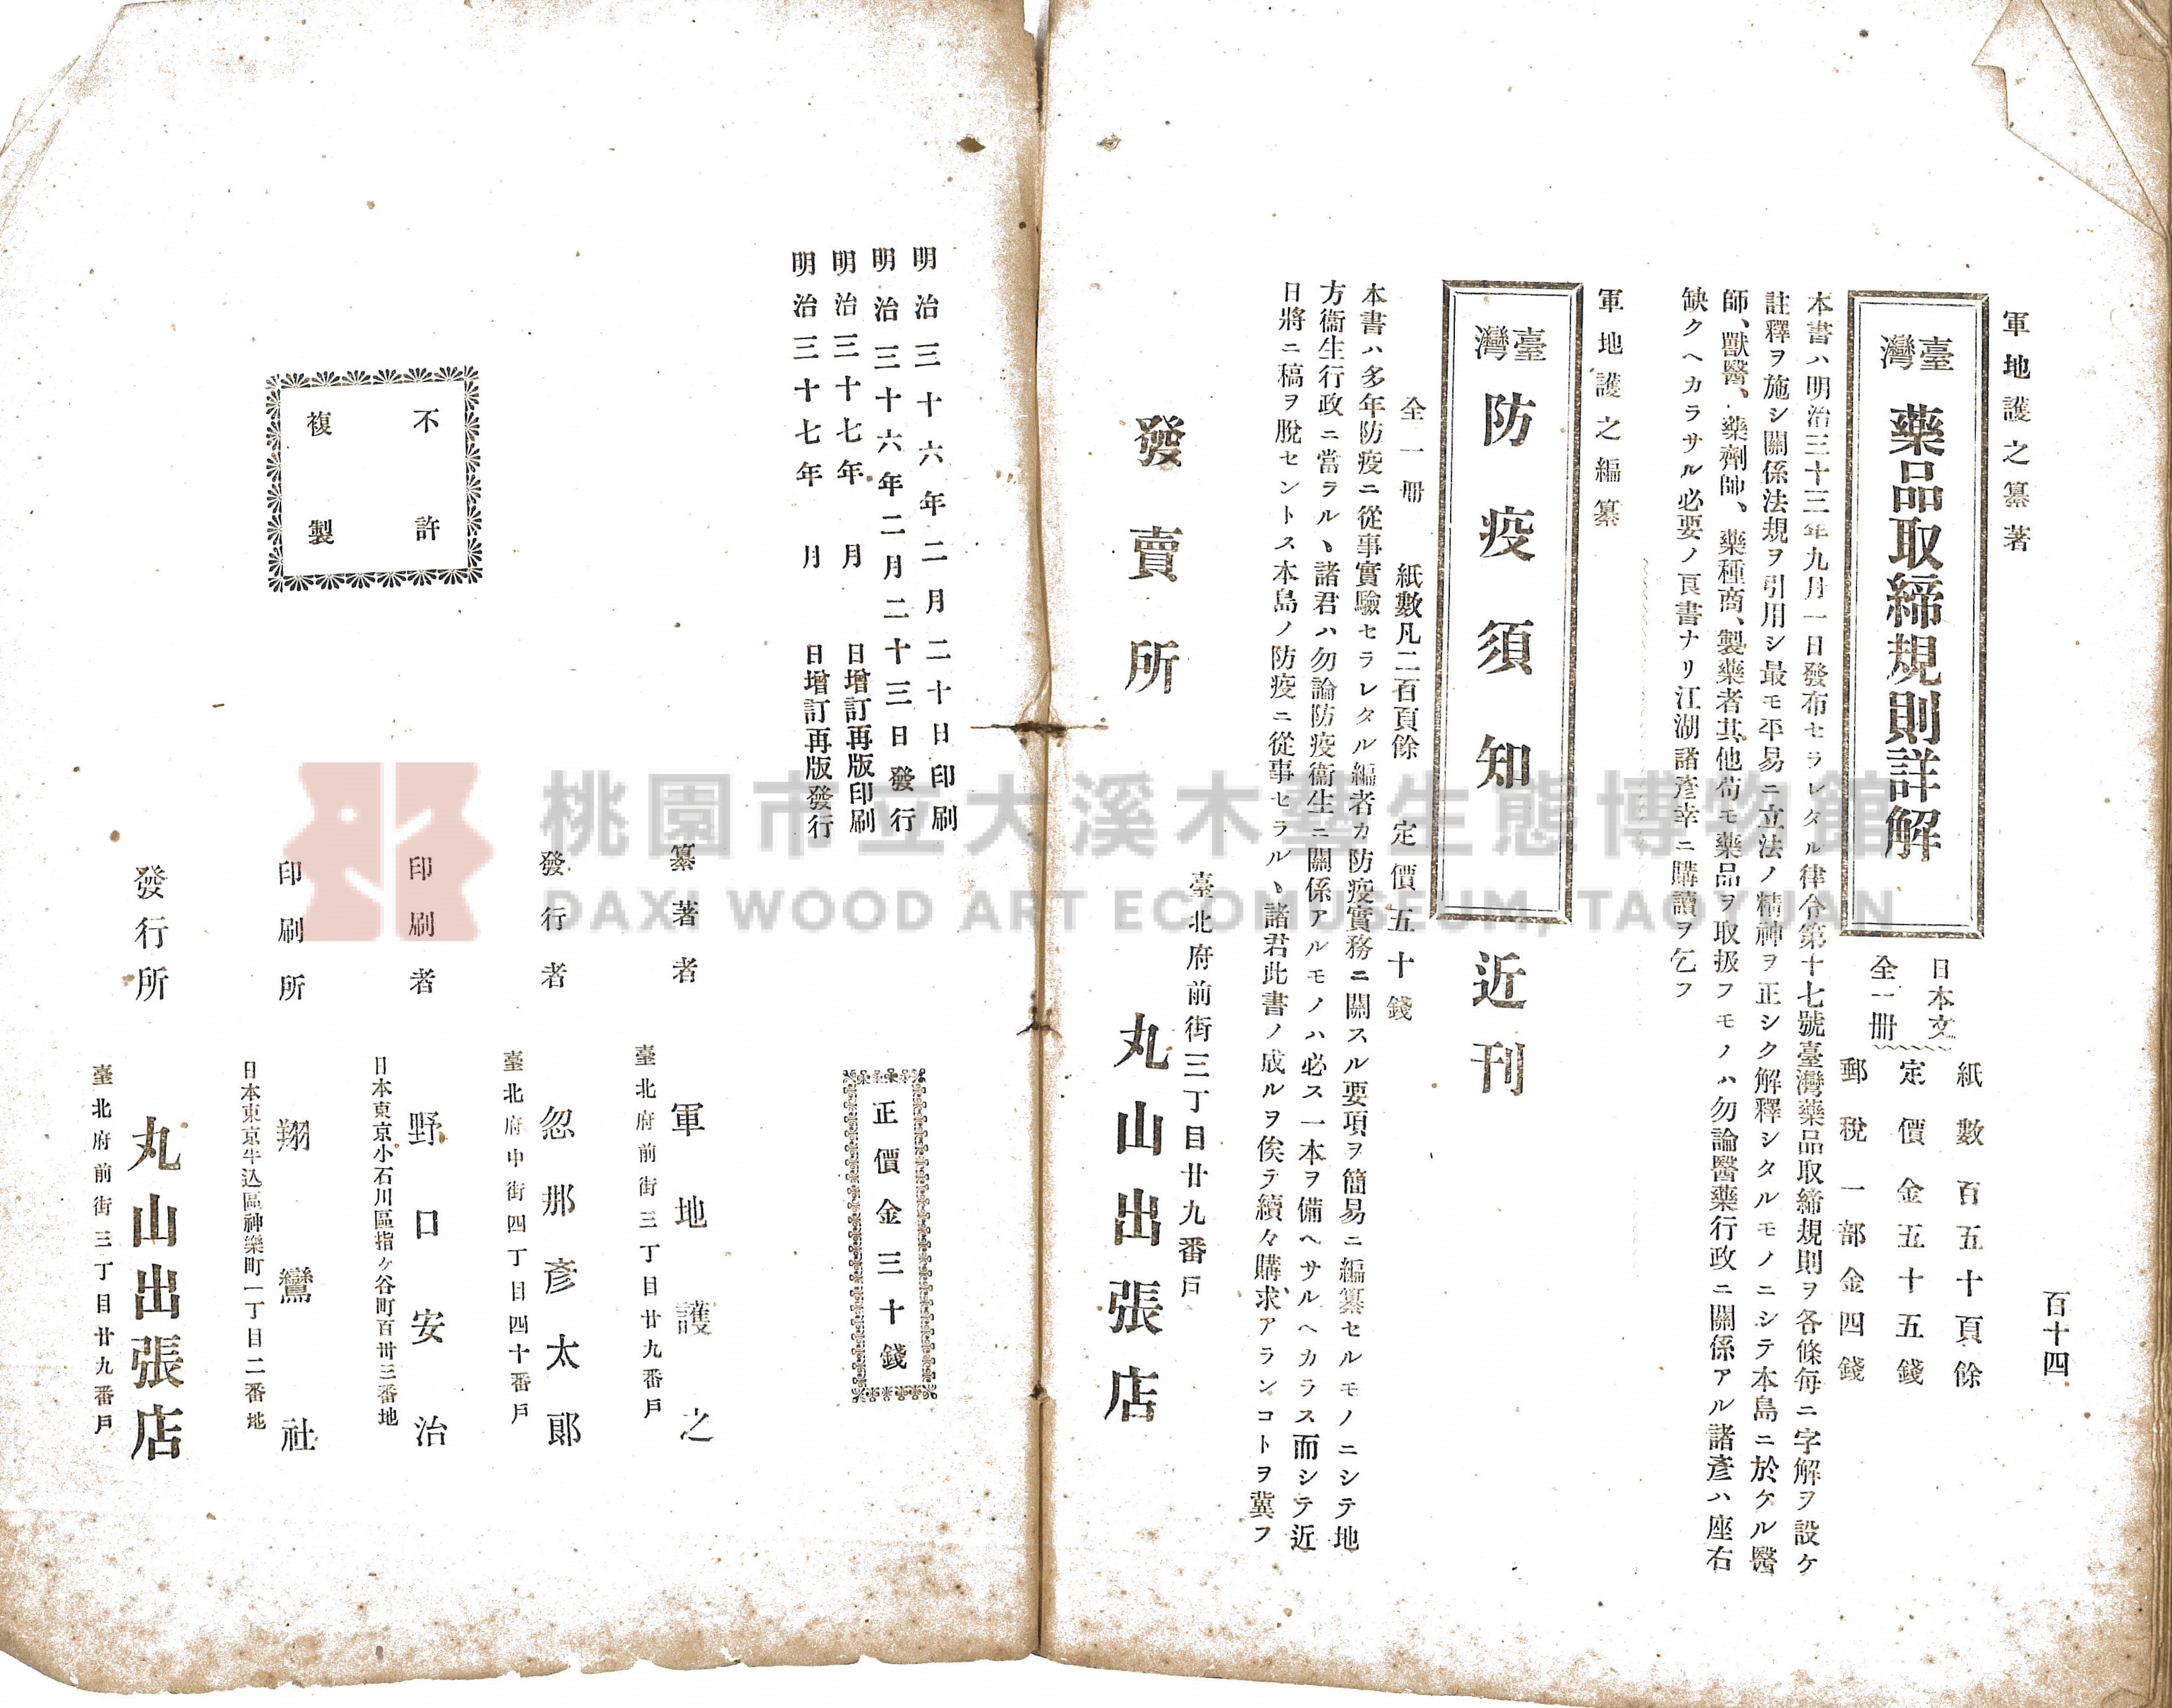 百十四
軍地護之纂著
臺灣藥品取締規則詳解
日本文
全一冊
紙數百五十頁餘
定價金五十五錢
郵稅一部金四錢
本書ハ明治三十三年九月一日發布セラレタル律令第十七號臺灣藥品取締規則ヲ各條每ニ字解ヲ設ケ
註釋ヲ施シ關係法規ヲ引用シ最モ平易ニ立法ノ精神ヲ正シク解釋シタルモノニシテ本島ニ於ケル醫
師、獸醫、藥劑師、藥種商、製藥者其他苟モ藥品ヲ取扱フモノハ勿論醫藥行政ニ關係アル諸彥ハ座右
缺クヘカラサル必要ノ良書ナリ江湖諸彥幸ニ購讀ヲ乞フ
軍地護之編纂
臺灣防疫須知
近刊
全一冊 紙數凡二百頁餘 定價五十錢
本書ハ多年防疫ニ從事實驗セラレタル編者カ防疫實務ニ關スル要項ヲ簡易ニ編纂セルモノニシテ地
方衞生行政ニ當ラル、諸君ハ勿論防疫衞生ニ關係アルモノハ必ス一本ヲ備ヘサルヘカラス而シテ近
日將ニ稿ヲ脫セントス本島ノ防疫ニ從事セラル、諸君此書ノ成ルヲ俟テ續々購求アランコトヲ冀フ
臺北府前街三丁目廿九番戶
發賣所 丸山出張店
明治三十六年二月二十日印刷
明治三十六年二月二十三日發行
明治三十七年 月 日增訂再版印刷
明治三十七年 月 日增訂再版發行
正價金三十錢
不許
複製
纂著者 軍地護之
臺北府前街三丁目廿九番戶
發行者 忽那彥太郎
臺北府中街四丁目四十番戶
印刷者 野口安治
日本東京小石川區指ヶ谷町百卅三番地
印刷所 翔鸞社
日本東京牛込區神樂町一丁目二番地
發行所 丸山出張店
臺北府前街三丁目廿九番戶
桃園市立大溪木藝生態博物館
DAXI WOOD ART ECOMUSEUM, TAOYUAN